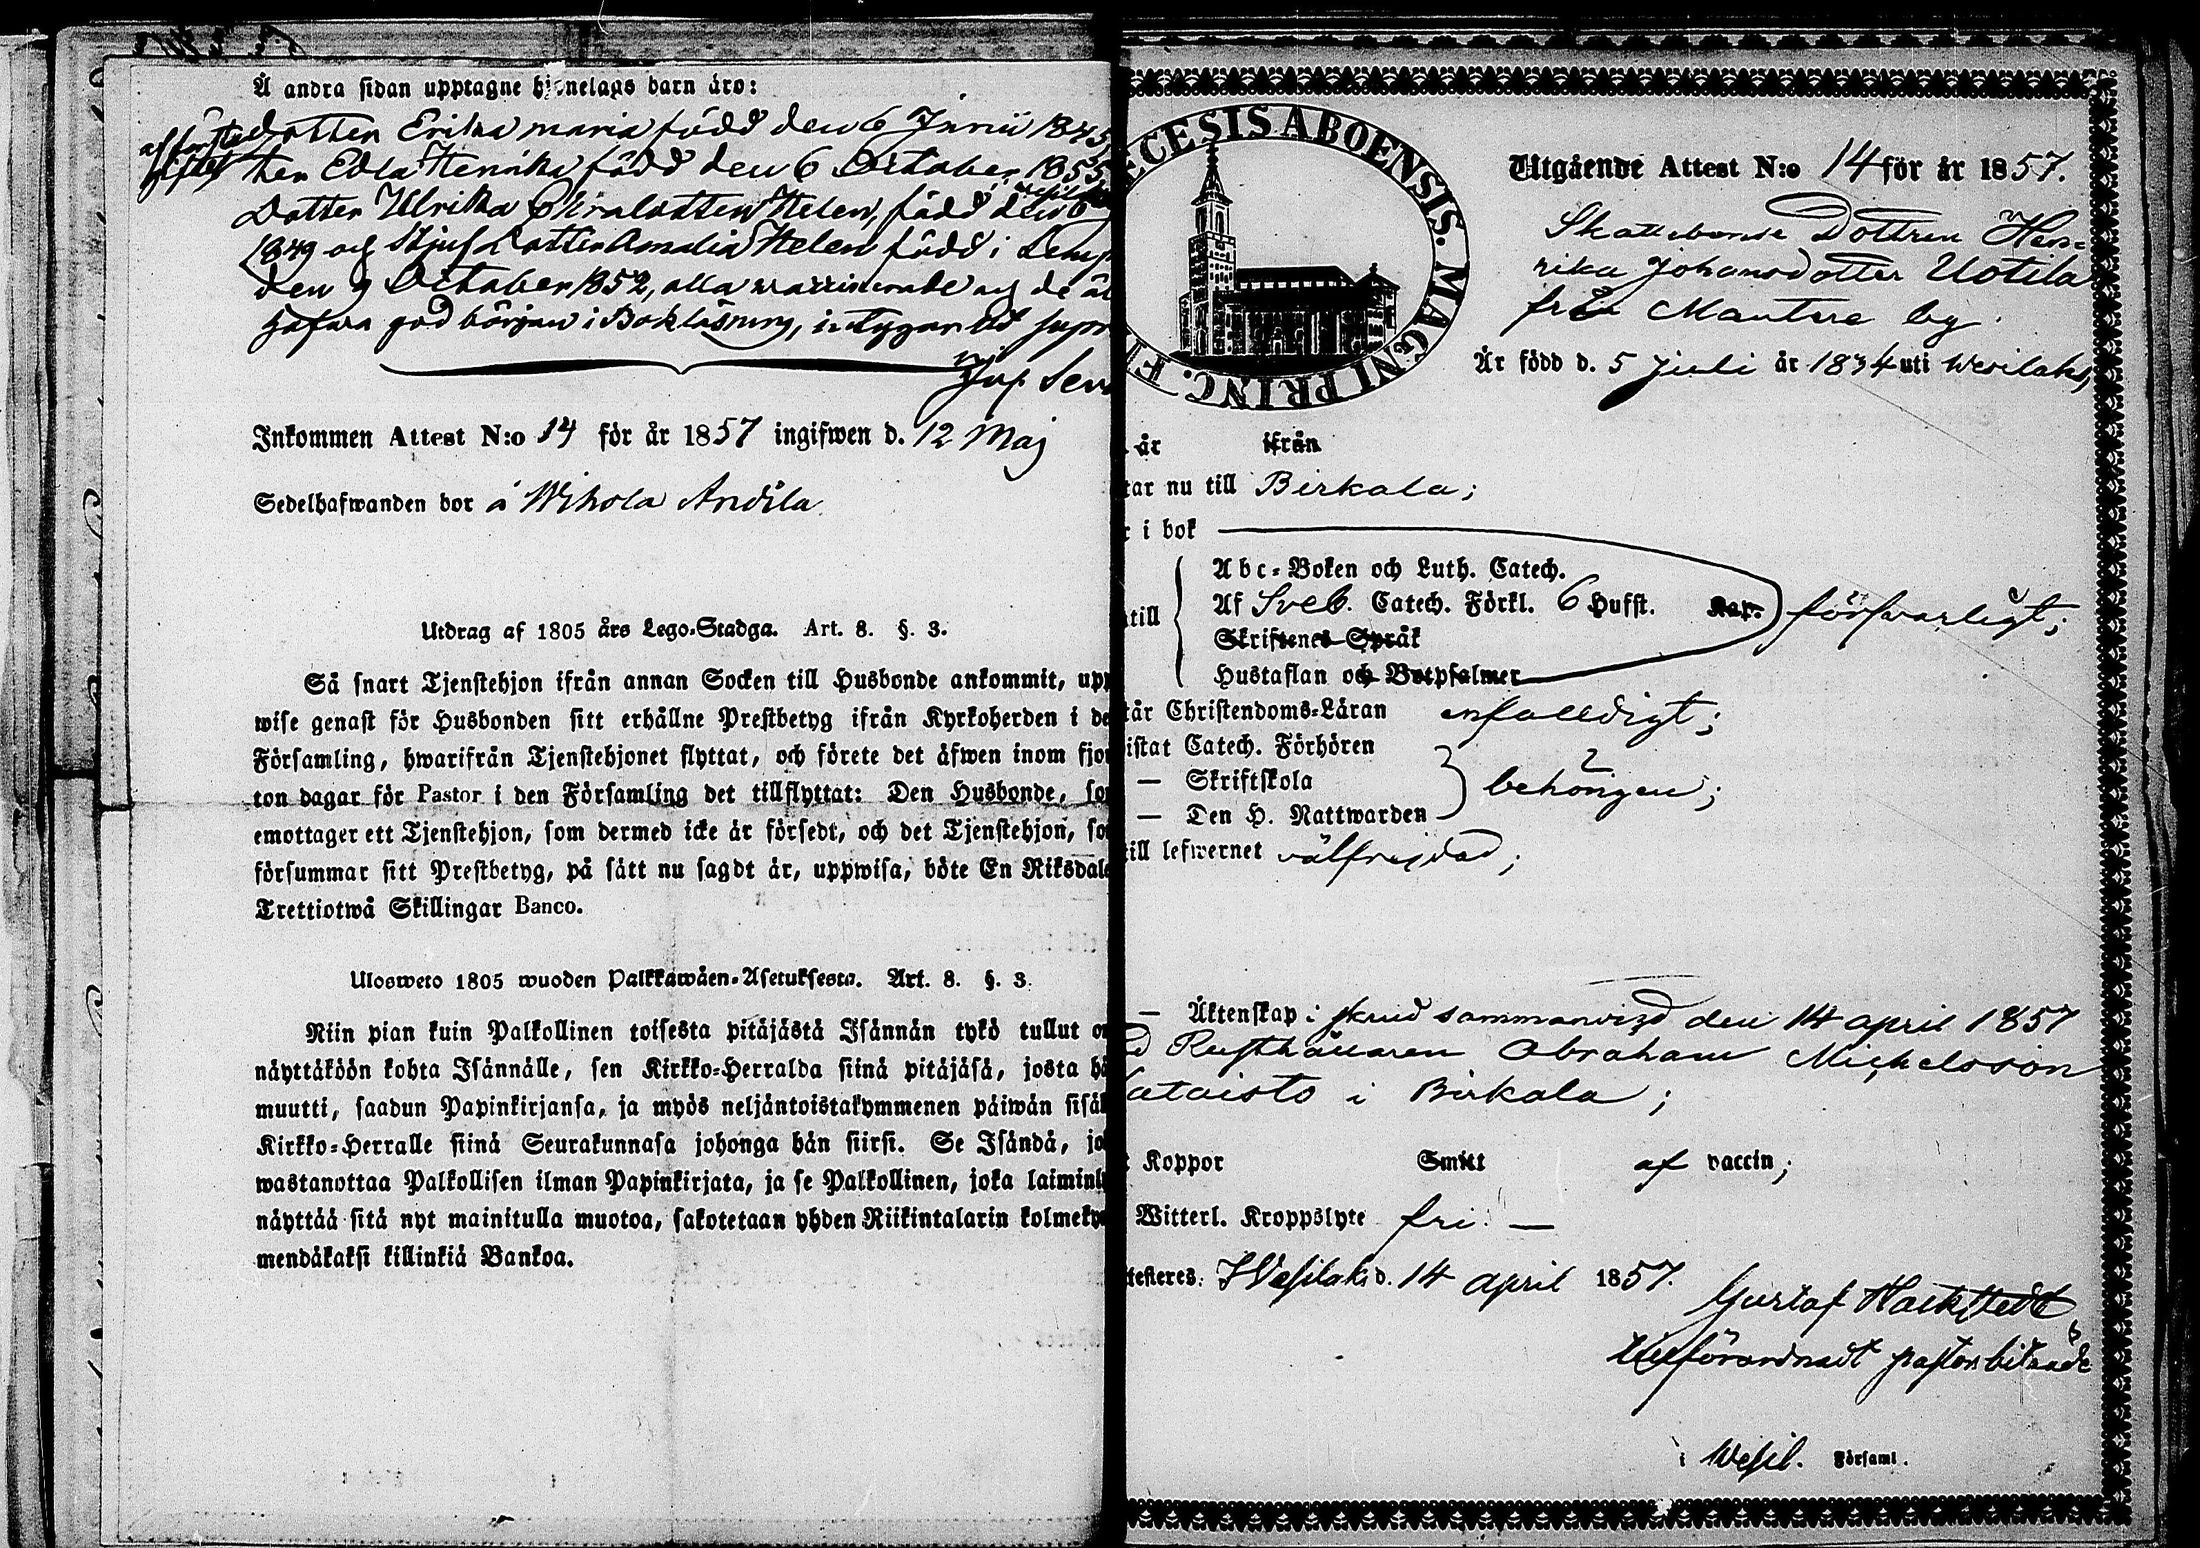 Å andra sidan upptagne hjonelags barn äro:
af förste
giftet
Dotter Erika Maria född den 6 Junii 1845
ter Edla Henrika född den 6 October 1855
Dotter Ulrika Helen, född den 6
1849 och Stjuf Dotter Amalia Helen född i Lemp
den 9 October 1852, alla vaccinerade och de äl
hafva god början i Bokläsning, intygar
Inkommen Attest N:o 14 för år 1857 ingifwen d. 12 Maj
Sedelhafwanden bor å Wihola Andila
Utdrag af 1805 års Lego-Stadga. Art. 8. §. 3.
Så snart Tjenstehjon ifrån annan Socken till Husbonde ankommit, upp
wise genast för Husbonden sitt erhållne Prestbetyg ifrån Kyrkoherden i de
Församling, hwarifrån Tjenstehjonet flyttat, och förete det äfwen inom fjor
ton dagar för Pastor i den Församling det tillflyttat: Den Husbonde, so
emottager ett Tjenstehjon, som dermed icke är försedt, och det Tjenstehjon, so
försummar sitt Prestbetyg, på sätt nu sagdt är, uppwisa, böte En Riksdale
Trettiotwå Skillingar Banco.
Ulosweto 1805 wuoden Palkkawäen-Asetuksesta. Art. 8. §. 3.
Niin pian kuin Palkollinen toisesta pitäjästä Isännän tykö tullut on
näyttäköön kohta Isännälle, sen Kirkko-Herralda siinä pitäjäsä, josta hä
muutti, saadun Papinkirjansa, ja myös neljäntoistakymmenen päiwän sisäl
Kirkko-Herralle siinä Seurakunnasa johonga hän siirsi. Se Isändä, jo
wastanottaa Palkollisen ilman Papinkirjata, ja se Palkollinen, joka laiminly
näyttää sitä nyt mainitulla muotoa, sakotetaan yhden Riikintalarin kolmeky
mendäkaksi killinkiä Bankoa.
ECESIS ABOENSIS. MAGNI PRINC. F
Utgående Attest N:o 14 för år 1857.
Skattebonde Dottren Hen=
rika Johansdotter Uotila
från Mantere by.
Är född d. 5 juli år 1834 uti Wesilaks,
år ifrån
tar nu till Birkala;
r i bok
Abc-Boken och Luth. Catech.
ntill Af Sveb. Catech. Förkl. 6 Hufst. Kap. försvarligt;
Skriftenes Språk
Hustaflan och Botpsalmer
tår Christendoms-Läran enfaldigt;
istat Catech. Förhören
— Skriftskola behörigen;
— Den H. Nattwarden
till lefwernet välfrejdad;
— Äktenskap: skrud sammanvigd den 14 april 1857
d Rusthållaren Abraham Michelsson
ataisto i Birkala;
t Koppor Smitt af vaccin;
Witterl. Kroppslyte fri. —
ttesteres: I Vesilaks d. 14 april 1857.
Gustaf Hackstedt
förordnadt pastors biträde
i Wesil. Församl.